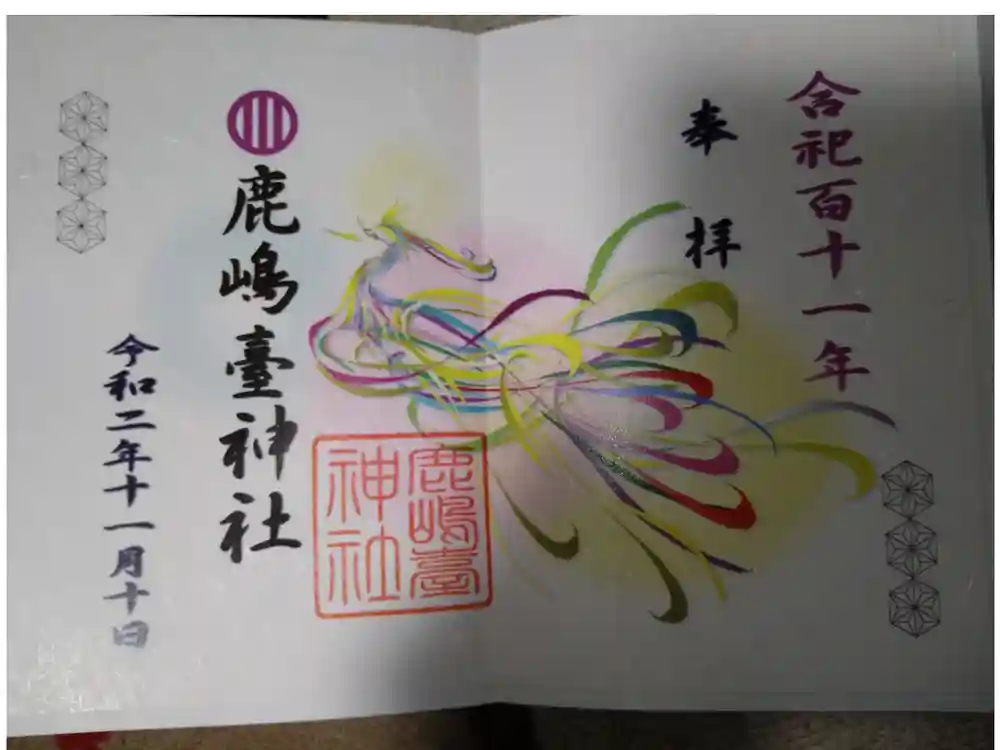 合祀百十一年
奉拝
鹿嶋臺神社
鹿嶋臺
神社
令和二年十一月十日